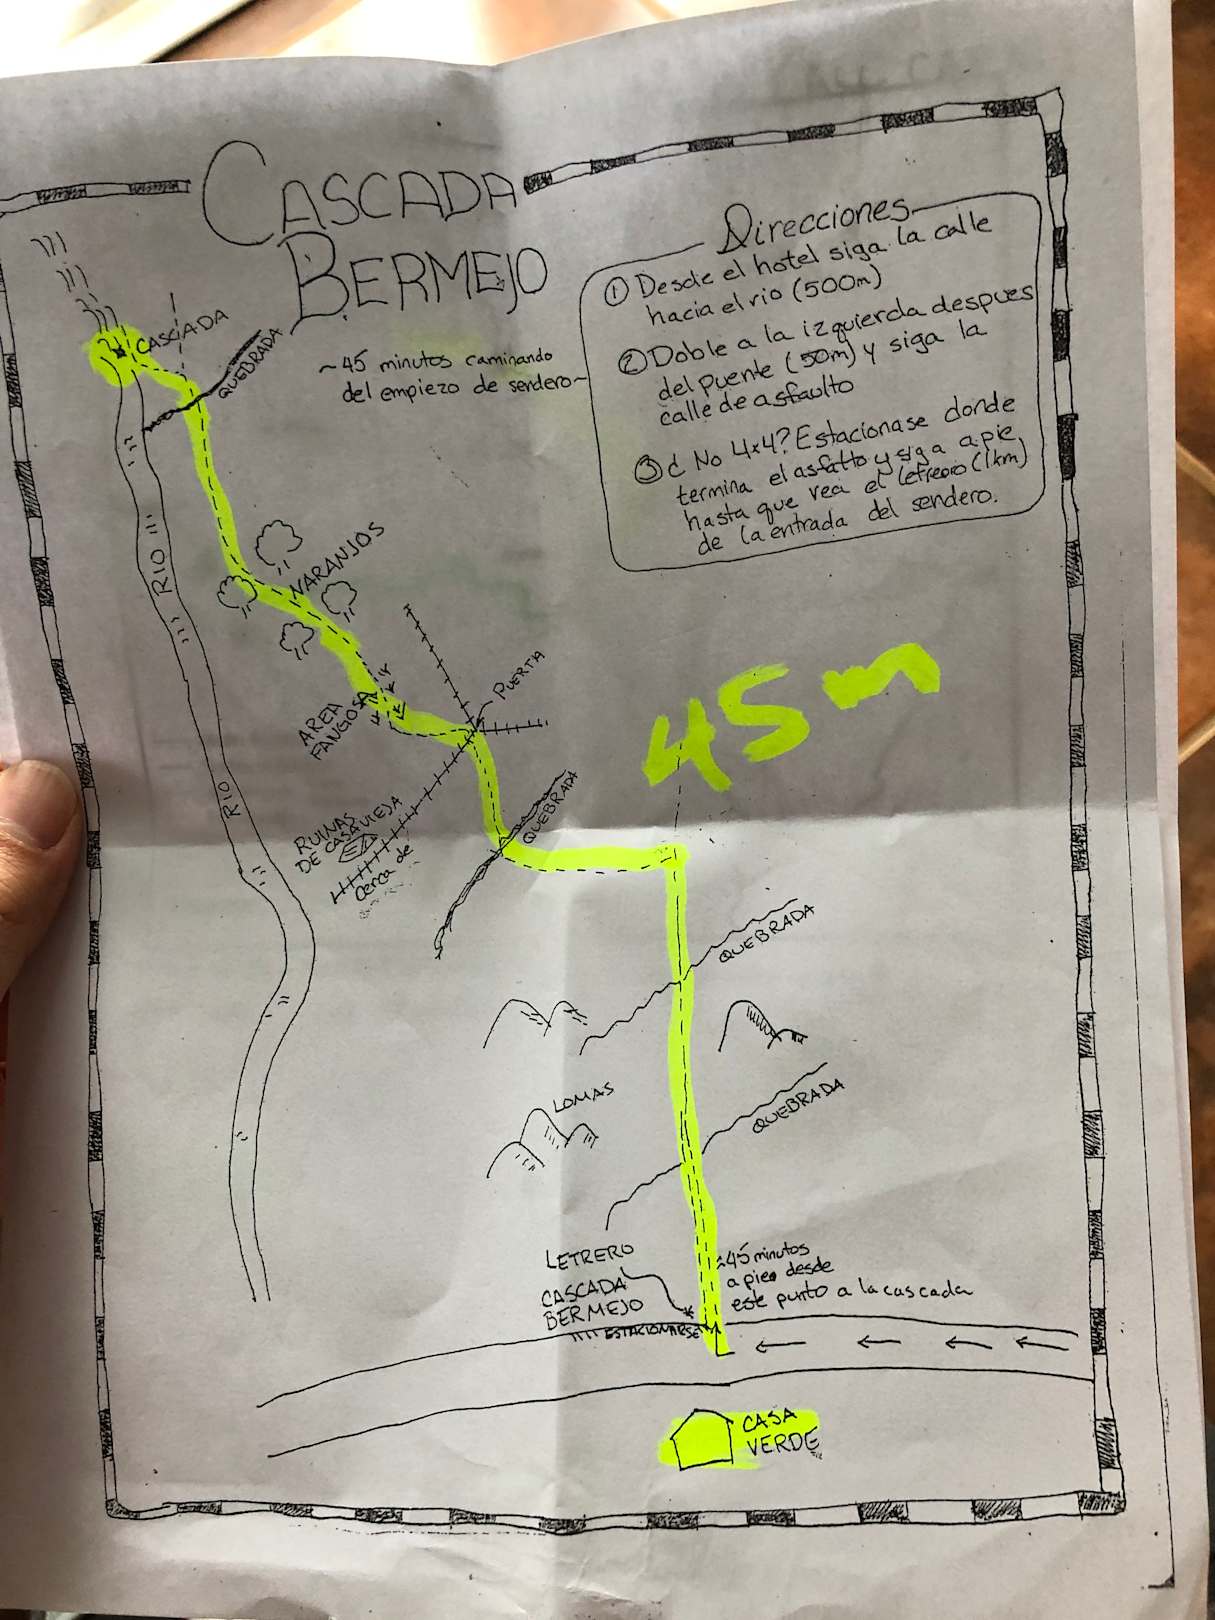 CASCADA
BERMEJO
~45 minutos caminando
del empiezo de sendero~
Direcciones
① Desde el hotel siga la calle
hacia el rio (500m)
② Doble a la izquierda despues
del puente (50m) y siga la
calle de asfaulto
③ ¿ No 4x4? Estacionase donde
termina el asfalto y siga a pie
hasta que vea el letrero (1km)
de la entrada del sendero.
CASCADA
QUEBRADA
RIO
NARANJOS
PUERTA
AREA
FANGOSA
45m
RIO
RUINAS
DE CASA VIEJA
Cerca de
QUEBRADA
QUEBRADA
LOMAS
QUEBRADA
LETRERO
CASCADA
BERMEJO
ESTACIONARSE
~45 minutos
a pie desde
este punto a la cascada
CASA
VERDE